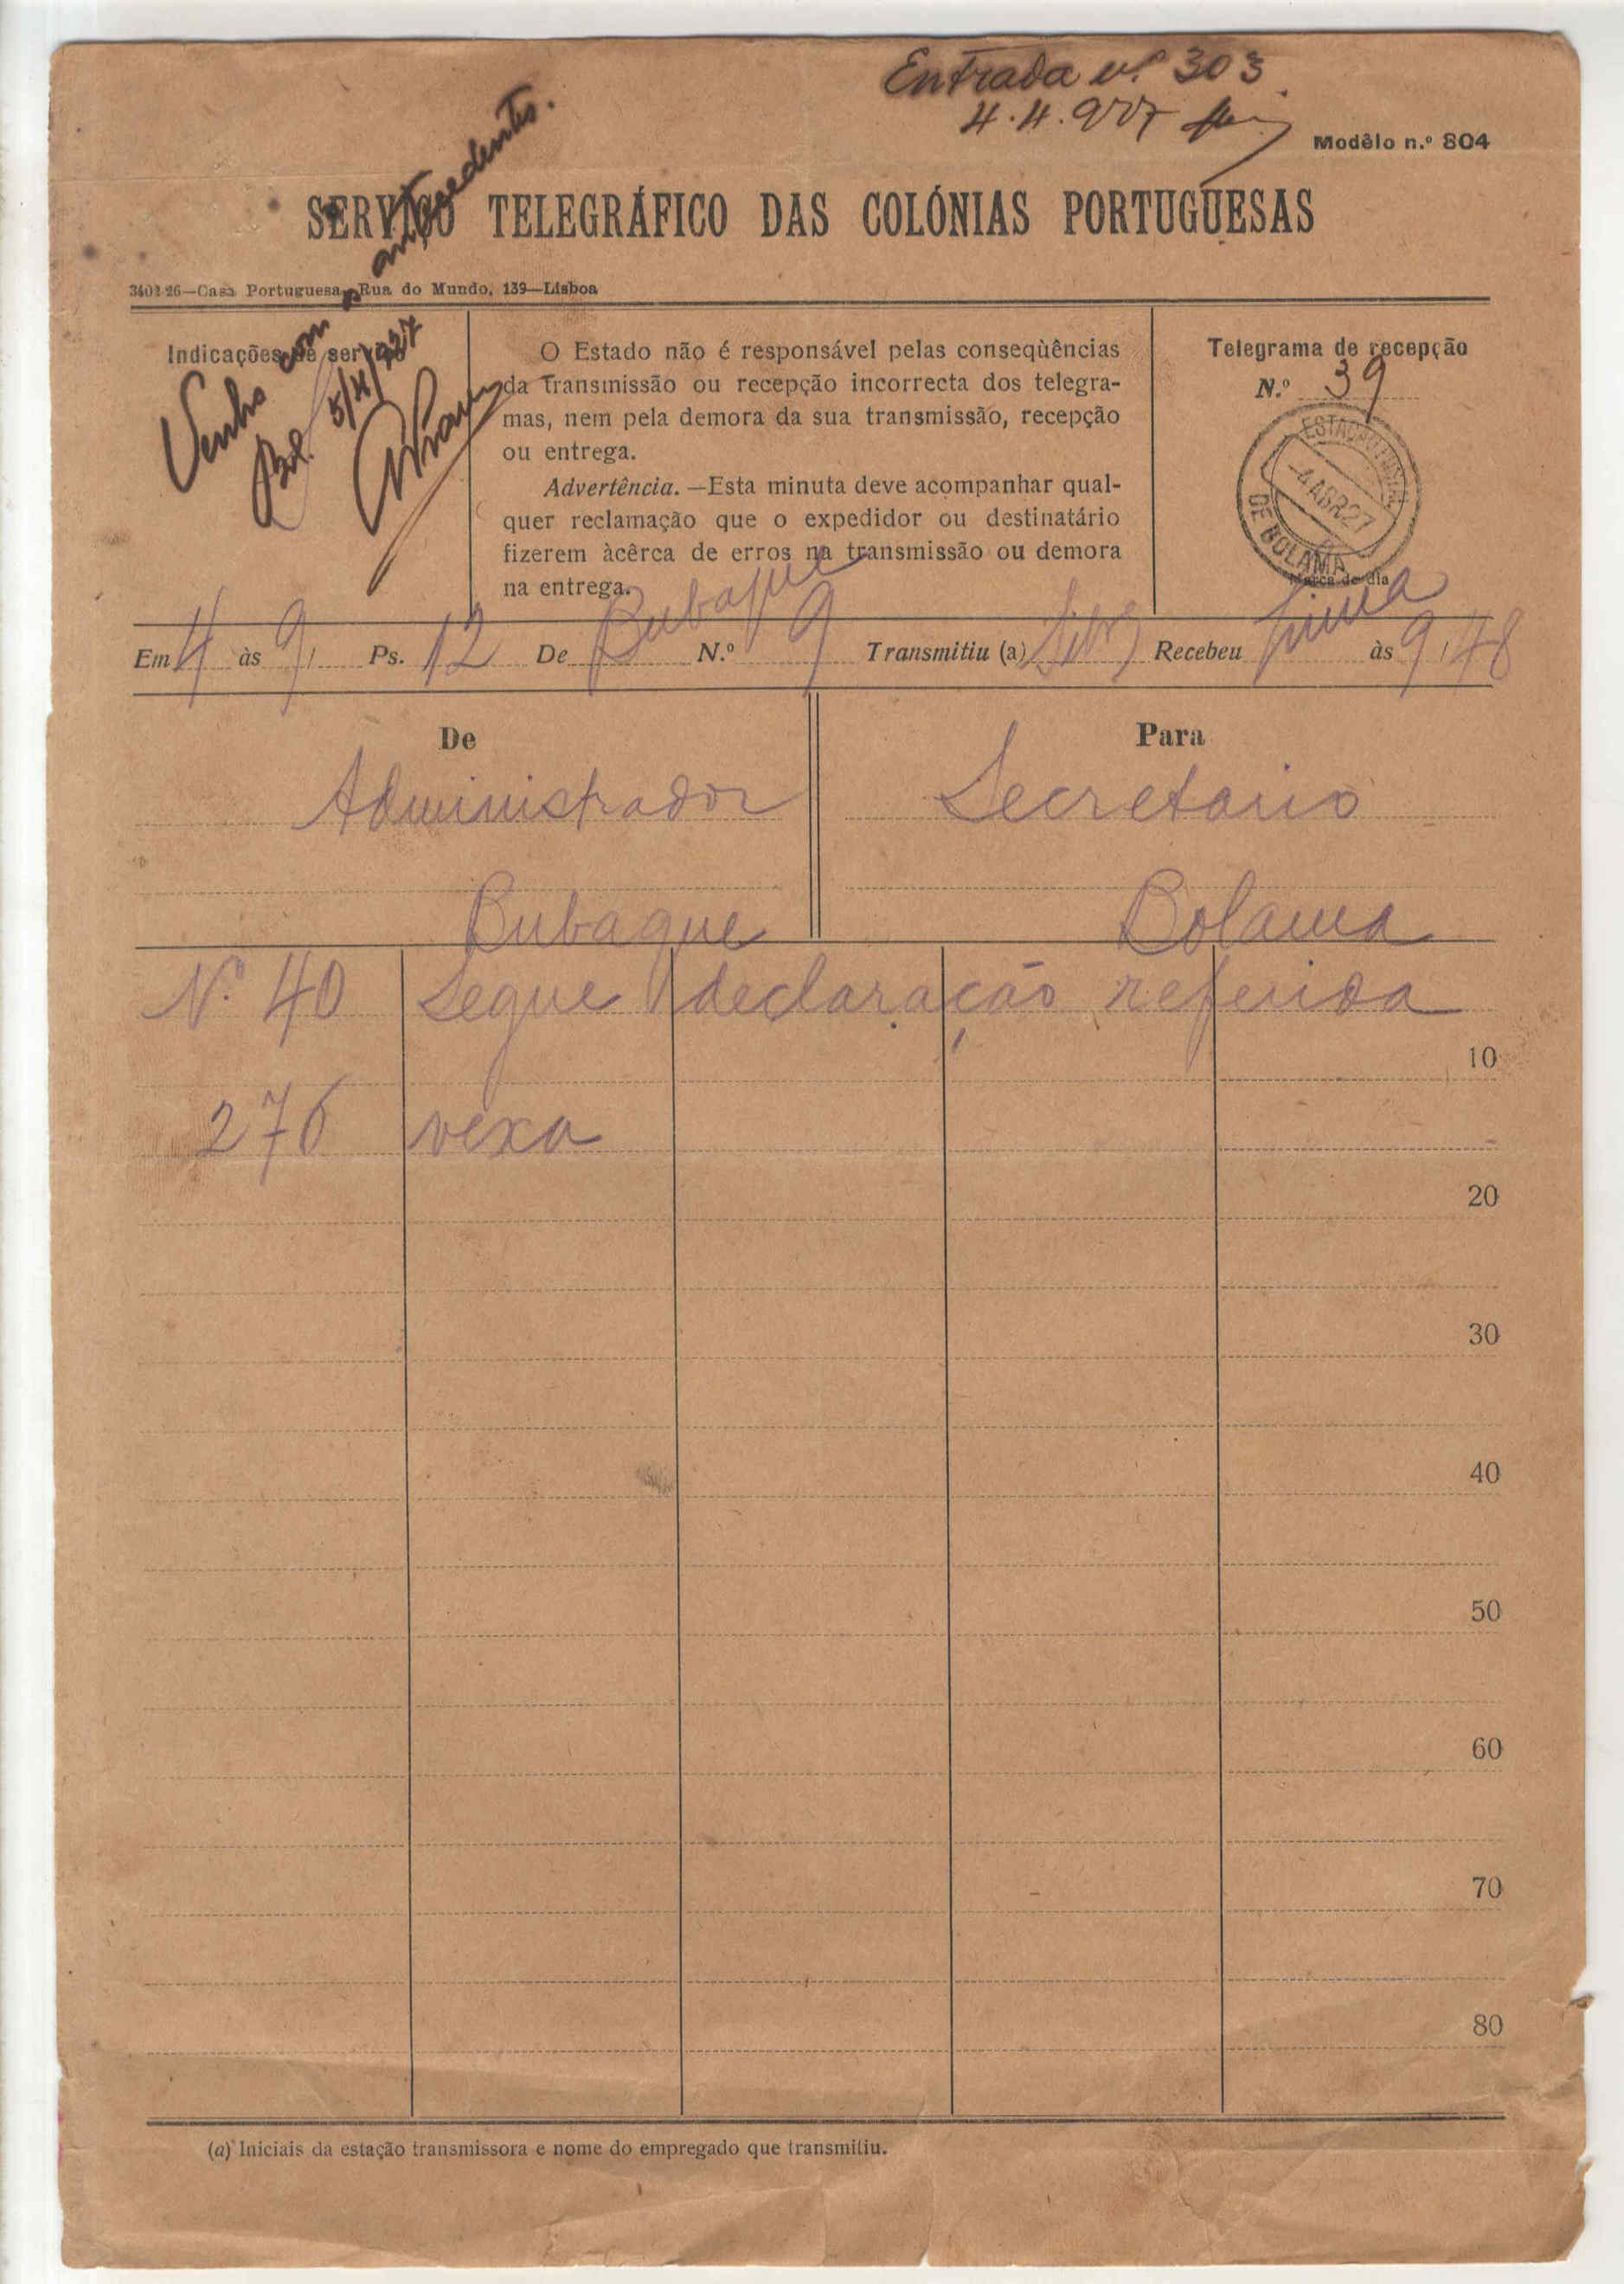 Entrada n.º 303
4.4.927
Modêlo n.º 804
SERVIÇO TELEGRÁFICO DAS COLÓNIAS PORTUGUESAS
3402-26—Casa Portuguesa, Rua do Mundo, 139—Lisboa
Indicações de serviço
Venha com antecedentes.
Bol. 5/4/927
O Estado não é responsável pelas conseqùências
da transmissão ou recepção incorrecta dos telegra-
mas, nem pela demora da sua transmissão, recepção
ou entrega.
Advertência. —Esta minuta deve acompanhar qual-
quer reclamação que o expedidor ou destinatário
fizerem àcêrca de erros na transmissão ou demora
na entrega.
Telegrama de recepção
N.º 39
ESTAÇÃO POSTAL
-4 ABR 27
DE BOLAMA
Marca do dia
Em 4 às 9 Ps. 12 De Bubaque N.º 9 Transmitiu (a) Recebeu Lima às 9,48
De
Administrador
Bubaque
Para
Secretario
Bolama
N.º 40 Segue declaração referida
10
276 vexa
20
30
40
50
60
70
80
(a) Iniciais da estação transmissora e nome do empregado que transmitiu.